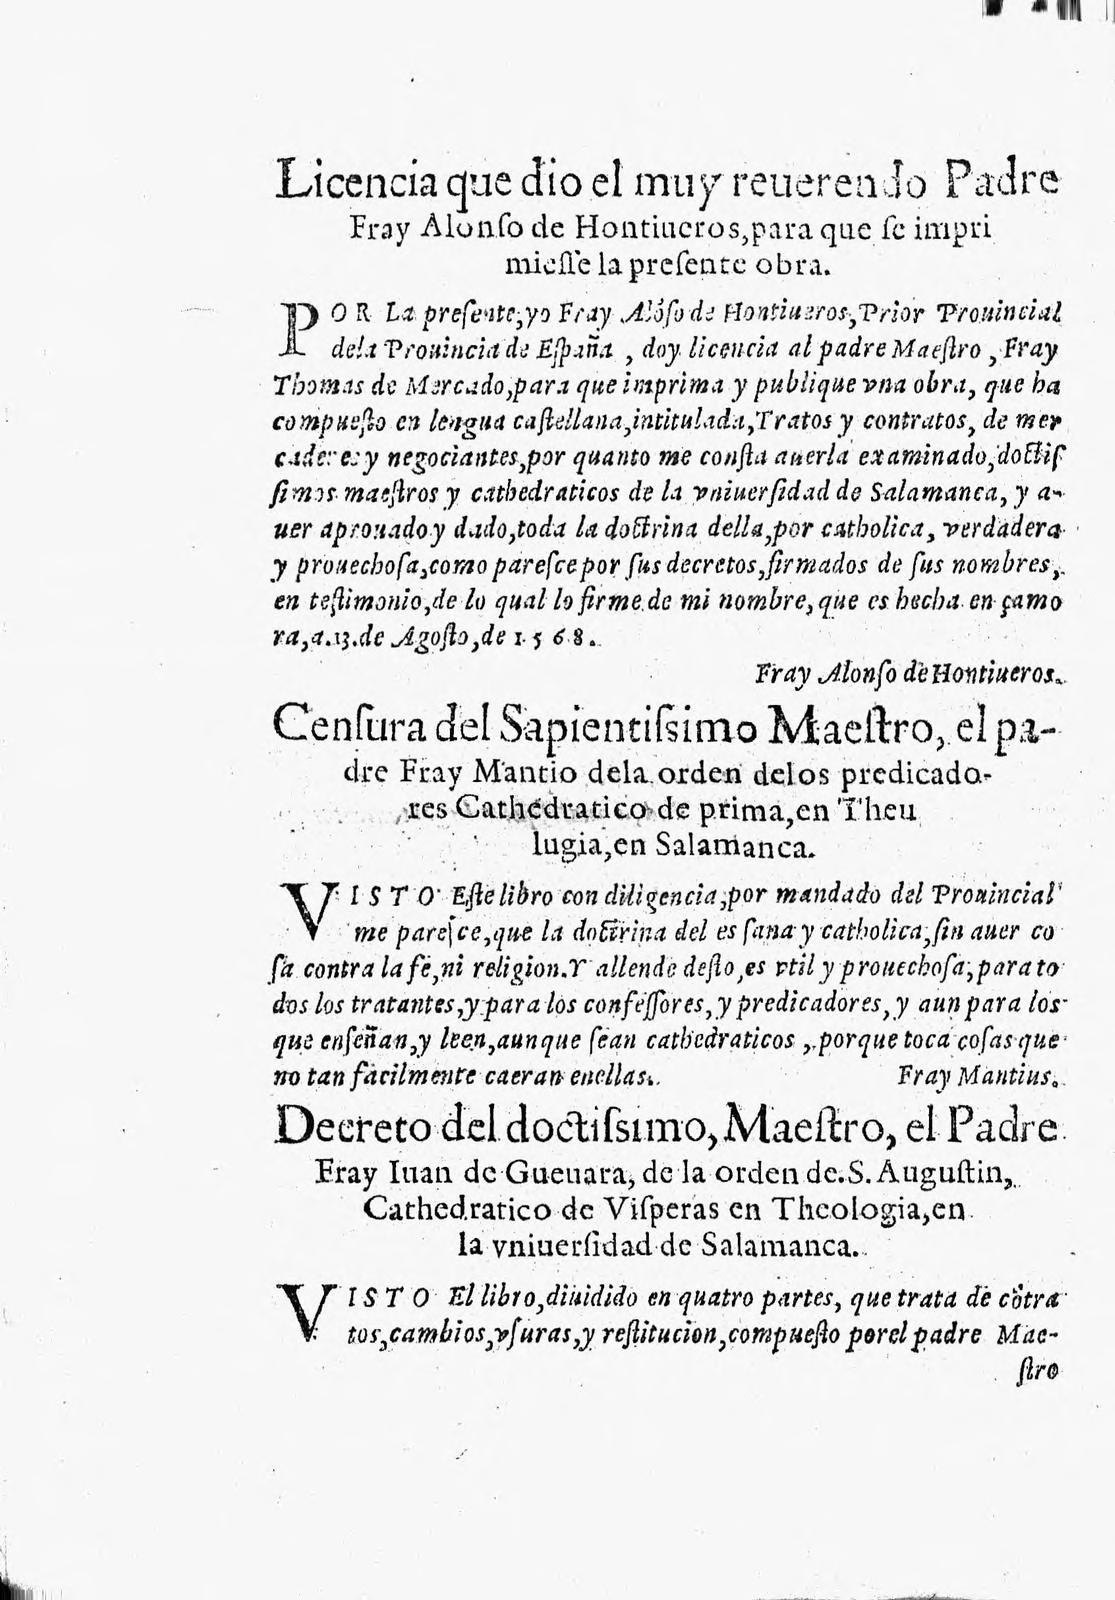 Licencia que dio el muy reuerendo Padre
Fray Alonſo de Hontiueros,para que ſe impri
mieſſe la preſente obra.
POR La preſente,yo Fray Alõſo de Hontiueros,Prior Prouincial
dela Prouincia de Eſpaña , doy licencia al padre Maeſtro , Fray
Thomas de Mercado,para que imprima y publique vna obra, que ha
compueſto en lengua caſtellana,intitulada,Tratos y contratos, de mer
caderes y negociantes,por quanto me conſta auerla examinado,doctiſ
ſimos maeſtros y cathedraticos de la vniuerſidad de Salamanca, y a-
uer aprouado y dado,toda la doctrina della,por catholica, verdadera
y prouechoſa,como pareſce por ſus decretos,firmados de ſus nombres,
en teſtimonio,de lo qual lo firme de mi nombre,que es hecha en çamo
ra,a.13.de Agoſto,de 1568.
Fray Alonſo de Hontiueros.
Cenſura del Sapientiſsimo Maeſtro, el pa-
dre Fray Mantio dela orden delos predicado-
res Cathedratico de prima,en Theu
lugia,en Salamanca.
VISTO Eſte libro con diligencia,por mandado del Prouincial
me pareſce,que la doctrina del es ſana y catholica,ſin auer co
ſa contra la fe,ni religion.Y allende deſto,es vtil y prouechoſa,para to
dos los tratantes,y para los confeſſores, y predicadores, y aun para los
que enſeñan,y leen,aunque ſean cathedraticos , porque toca coſas que
no tan facilmente caeran enellas. Fray Mantius.
Decreto del doctiſsimo, Maeſtro, el Padre
Fray Iuan de Gueuara, de la orden de.S.Auguſtin,
Cathedratico de Viſperas en Theologia,en
la vniuerſidad de Salamanca.
VISTO El libro,diuidido en quatro partes, que trata de cõtra
tos,cambios,vſuras,y reſtitucion,compueſto por el padre Mae-
ſtro